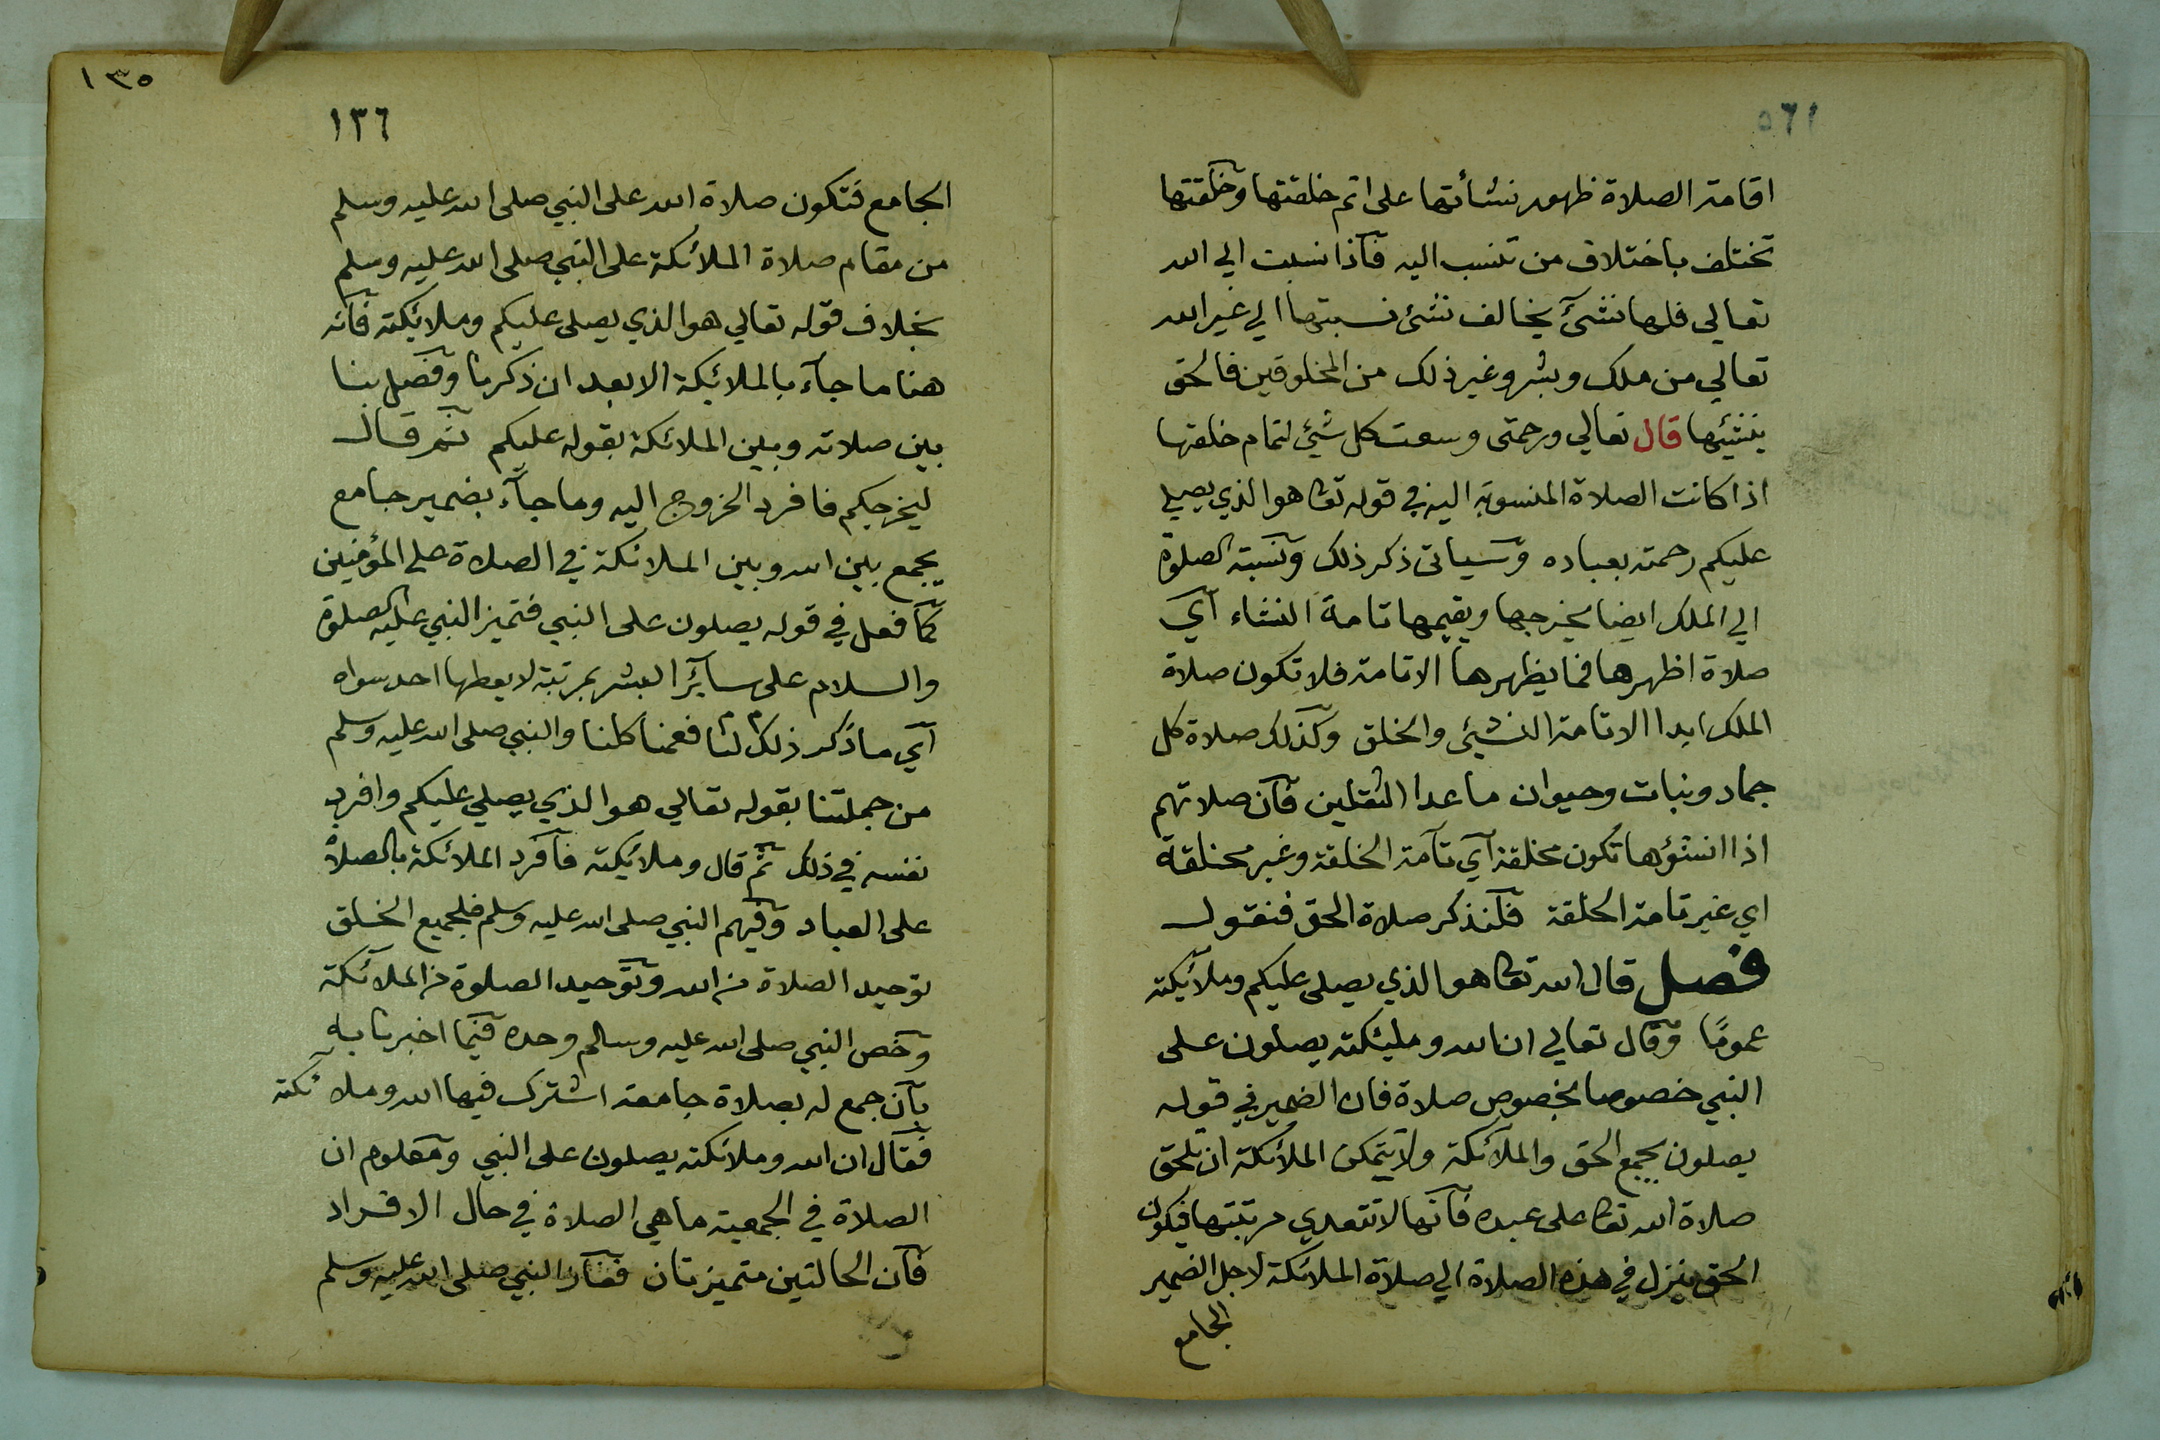 ٥٦١
اقامة الصلاة ظهور نشأتها على اتم خلقتها وخلقتها
تختلف باختلاف من تنسب اليه فاذا نسبت الي الله
تعالي فلها نشئ يخالف نشئ نسبتها الي غير الله
تعالي من ملك وبشر وغير ذلك من المخلوقين فالحق
ينشئها قال تعالي ورحمتى وسعت كل شيئ لتمام خلقتها
اذا كانت الصلاة المنسوبة اليه في قوله تعا هو الذي يصلي
عليكم رحمته بعباده وسياتى ذكر ذلك ونسبة الصلوة
الي الملك ايضا يخرجها ويقيمها تامة النشاء آي
صلاة اظهرها فما يظهرها الاتامة فلا تكون صلاة
الملك ابدا الاتامة النشيئ والخلق وكذلك صلاة كل
جماد ونبات وحيوان ما عدا الثقلين فان صلاتهم
اذا انشؤها تكون مخلقة آي تآمة الخلقة وغير مخلقة
اي غير تامة الخلقة فلنذكر صلاة الحق فنقول
فصل قال الله تعا هو الذي يصلى عليكم وملآئكته
عمومًا وقال تعالي ان الله ومليئكته يصلون على
النبي خصوصا بخصوص صلاة فان الضمير في قوله
يصلون يجمع الحق والملآئكة ولا يتمكن الملآئكة ان تلحق
صلاة الله تعا على عبده فانها لا تتعدي مرتبتها فيكون
الحق ينزل في هذه الصلاة الي صلاة الملائكة لاجل الضمير
الجامع
١٣٥
١٣٦
الجامع فتكون صلاة الله على النبي صلى الله عليه وسلم
من مقام صلاة الملائكة على النبي صلى الله عليه وسلم
بخلاف قوله تعالي هو الذي يصلى عليكم وملائكته فانه
هنا ما جآء بالملائكة الا بعد ان ذكرنا وفصل بنا
بين صلاته وبين الملائكة بقوله عليكم ثم قال
ليخرجكم فافرد الخروج اليه وما جآء بضمير جامع
يجمع بين الله وبين الملائكة في الصلاة على المؤمنين
كما فعل في قوله يصلون على النبي فتميز النبي عليه الصلوة
والسلام على سآئر البشر بمرتبة لا يعطها احد سواه
آي ما ذكر ذلك لنا فعمنا كلنا والنبي صلى الله عليه وسلم
من جملتنا بقوله تعالي هو الذي يصلي عليكم وافرد
نفسه في ذلك ثم قال وملائكته فآفرد الملائكة بالصلاة
على العباد وفيهم النبي صلى الله عليه وسلم فلجميع الخلق
توحيد الصلاة من الله وتوحيد الصلوة من الملآئكة
وخص النبي صلى الله عليه وسلم وحده فيما اخبرنا به
بآن جمع له بصلاة جامعة اشترك فيها الله وملائكته
فقال ان الله وملائكته يصلون على النبي ومعلوم ان
الصلاة في الجمعية ما هي الصلاة في حال الافراد
فآن الحالتين متميزتان ففاز النبي صلى الله عليه وسلم